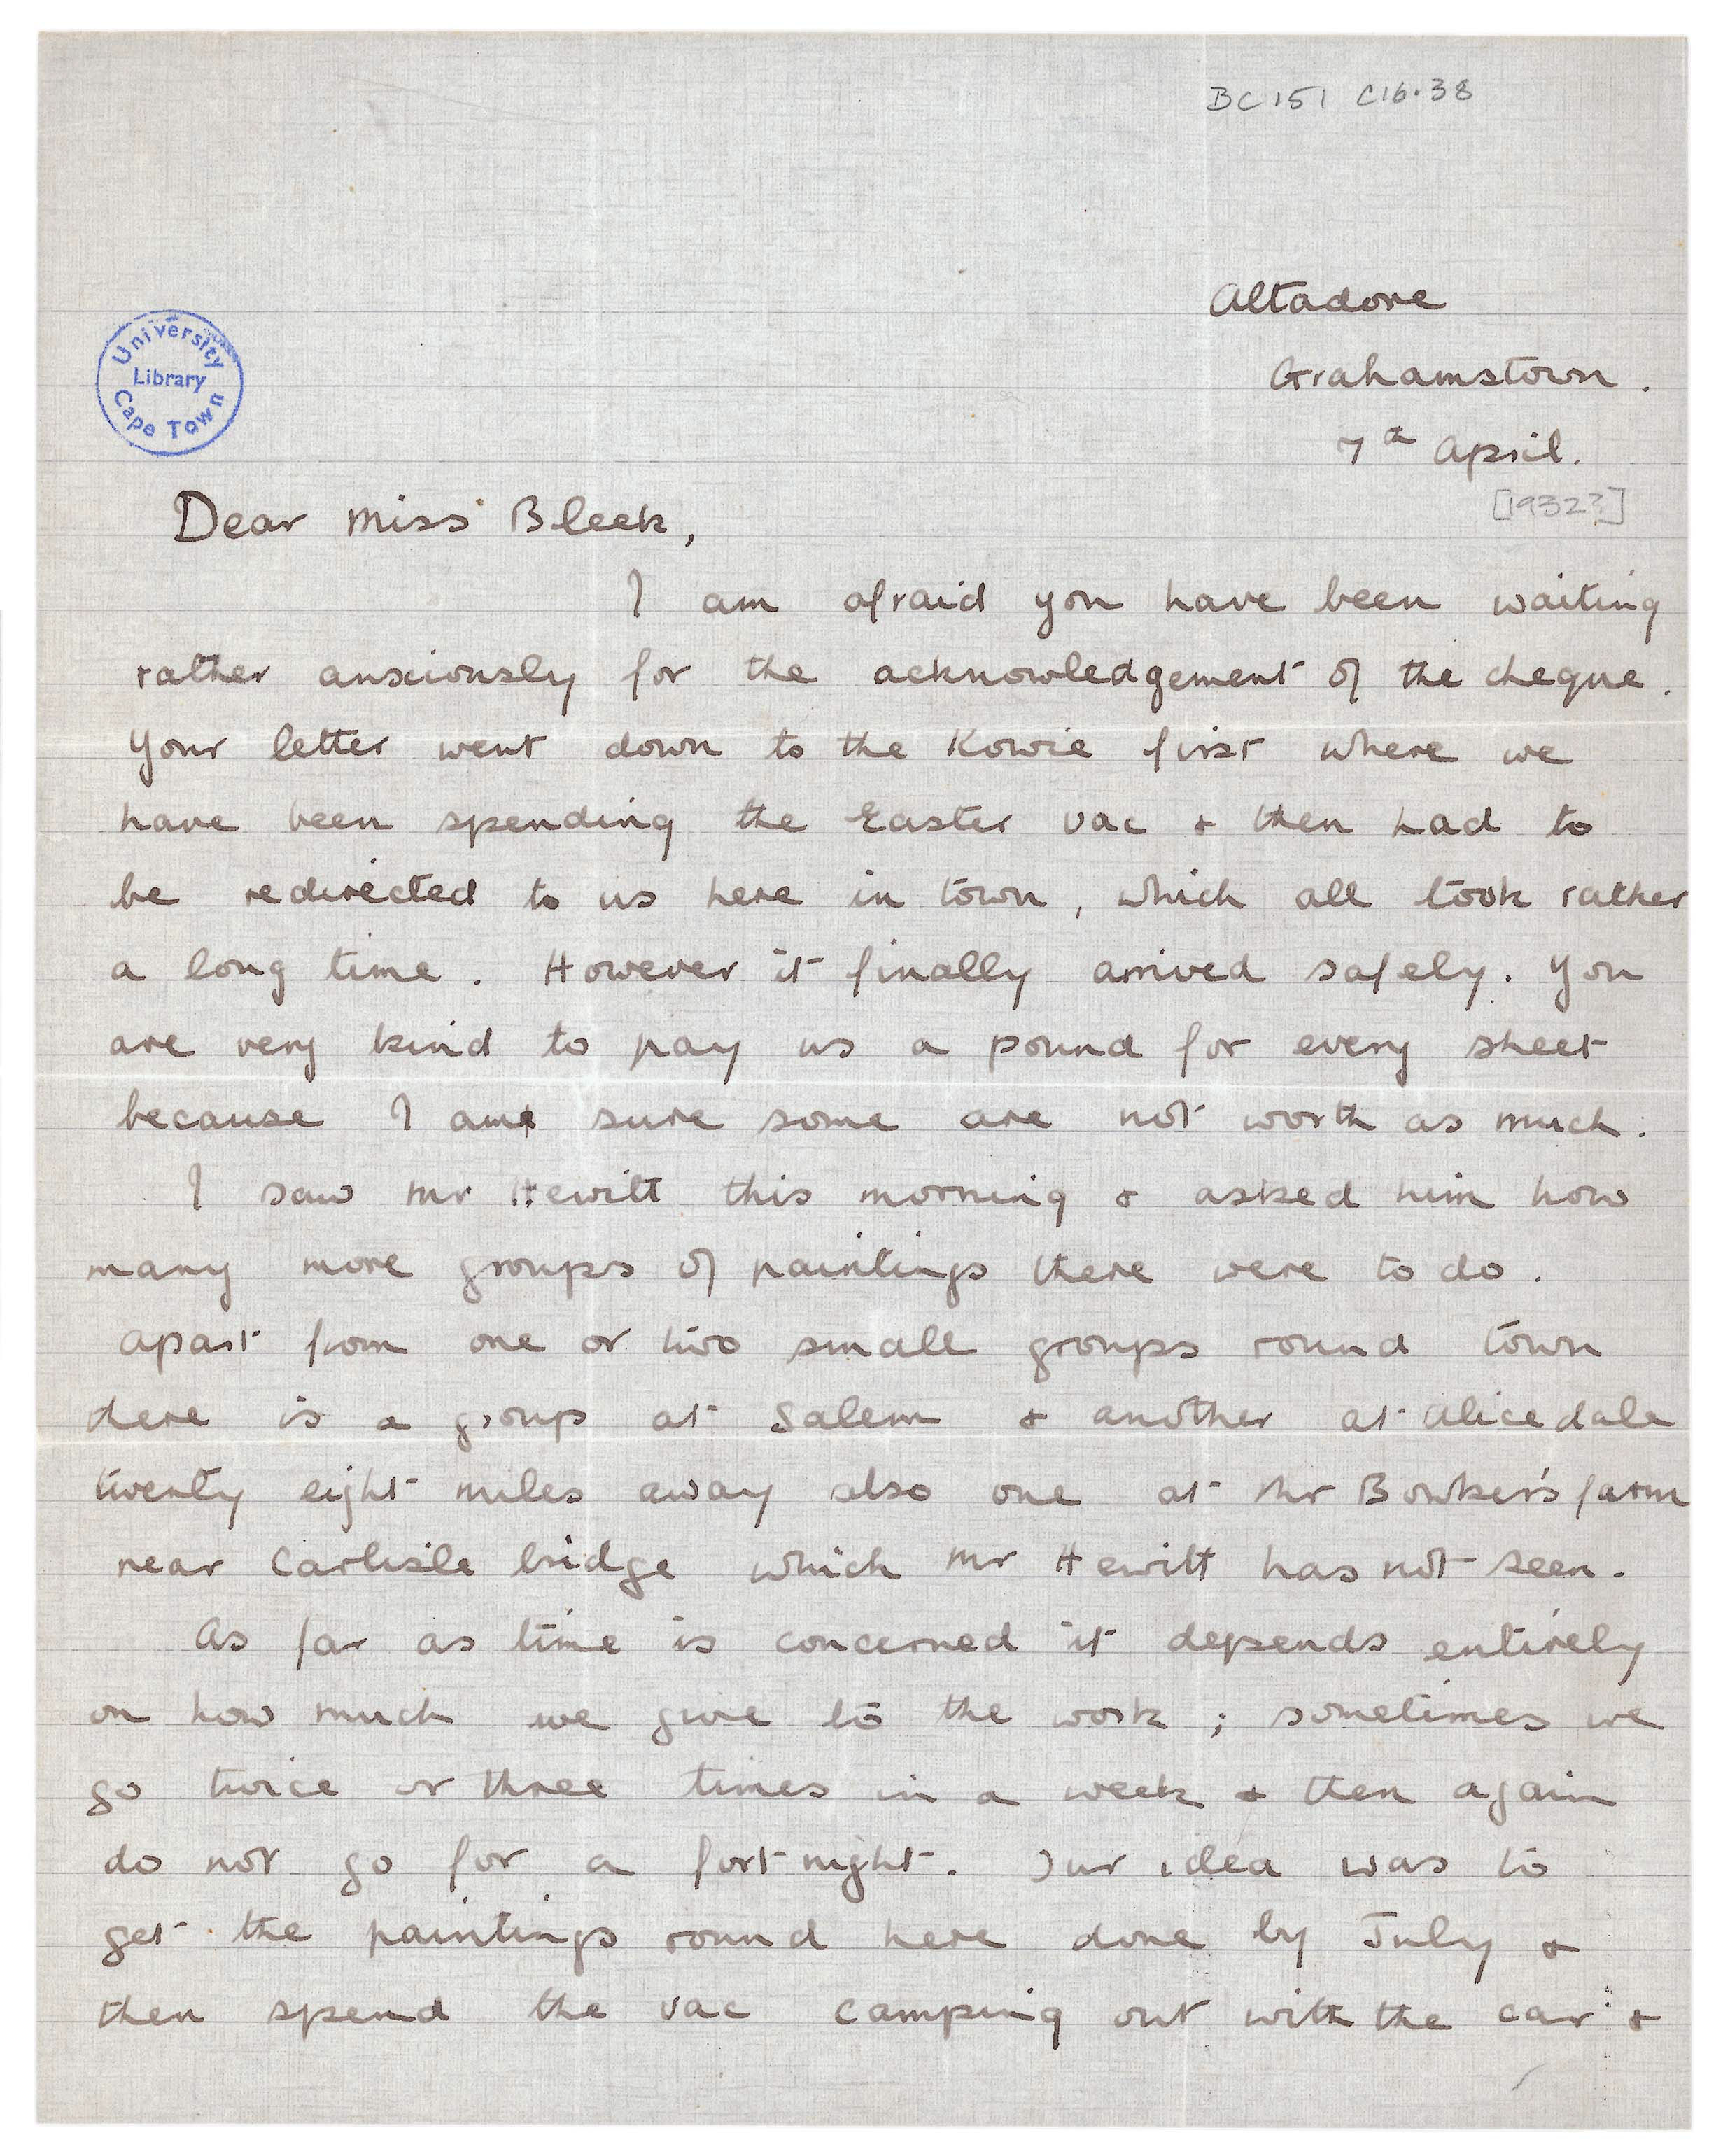 BC 151 C16.38
Altadore
Grahamstown.
7th April.
[1932?]
University
Library
Cape Town
Dear Miss Bleek,
I am afraid you have been waiting
rather anxiously for the acknowledgement of the cheque.
Your letter went down to the Kowie first where we
have been spending the Easter vac & then had to
be redirected to us here in town, which all took rather
a long time. However it finally arrived safely. You
are very kind to pay us a pound for every sheet
because I am sure some are not worth as much.
I saw Mr Hewitt this morning & asked him how
many more groups of paintings there were to do.
Apart from one or two small groups round town
there is a group at Salem & another at Alicedale
twenty eight miles away also one at Mr Bowker's farm
near Carlisle bridge which Mr Hewitt has not seen.
As far as time is concerned it depends entirely
on how much we give to the work; sometimes we
go twice or three times in a week & then again
do not go for a fortnight. Our idea was to
get the paintings round here done by July &
then spend the vac camping out with the car &